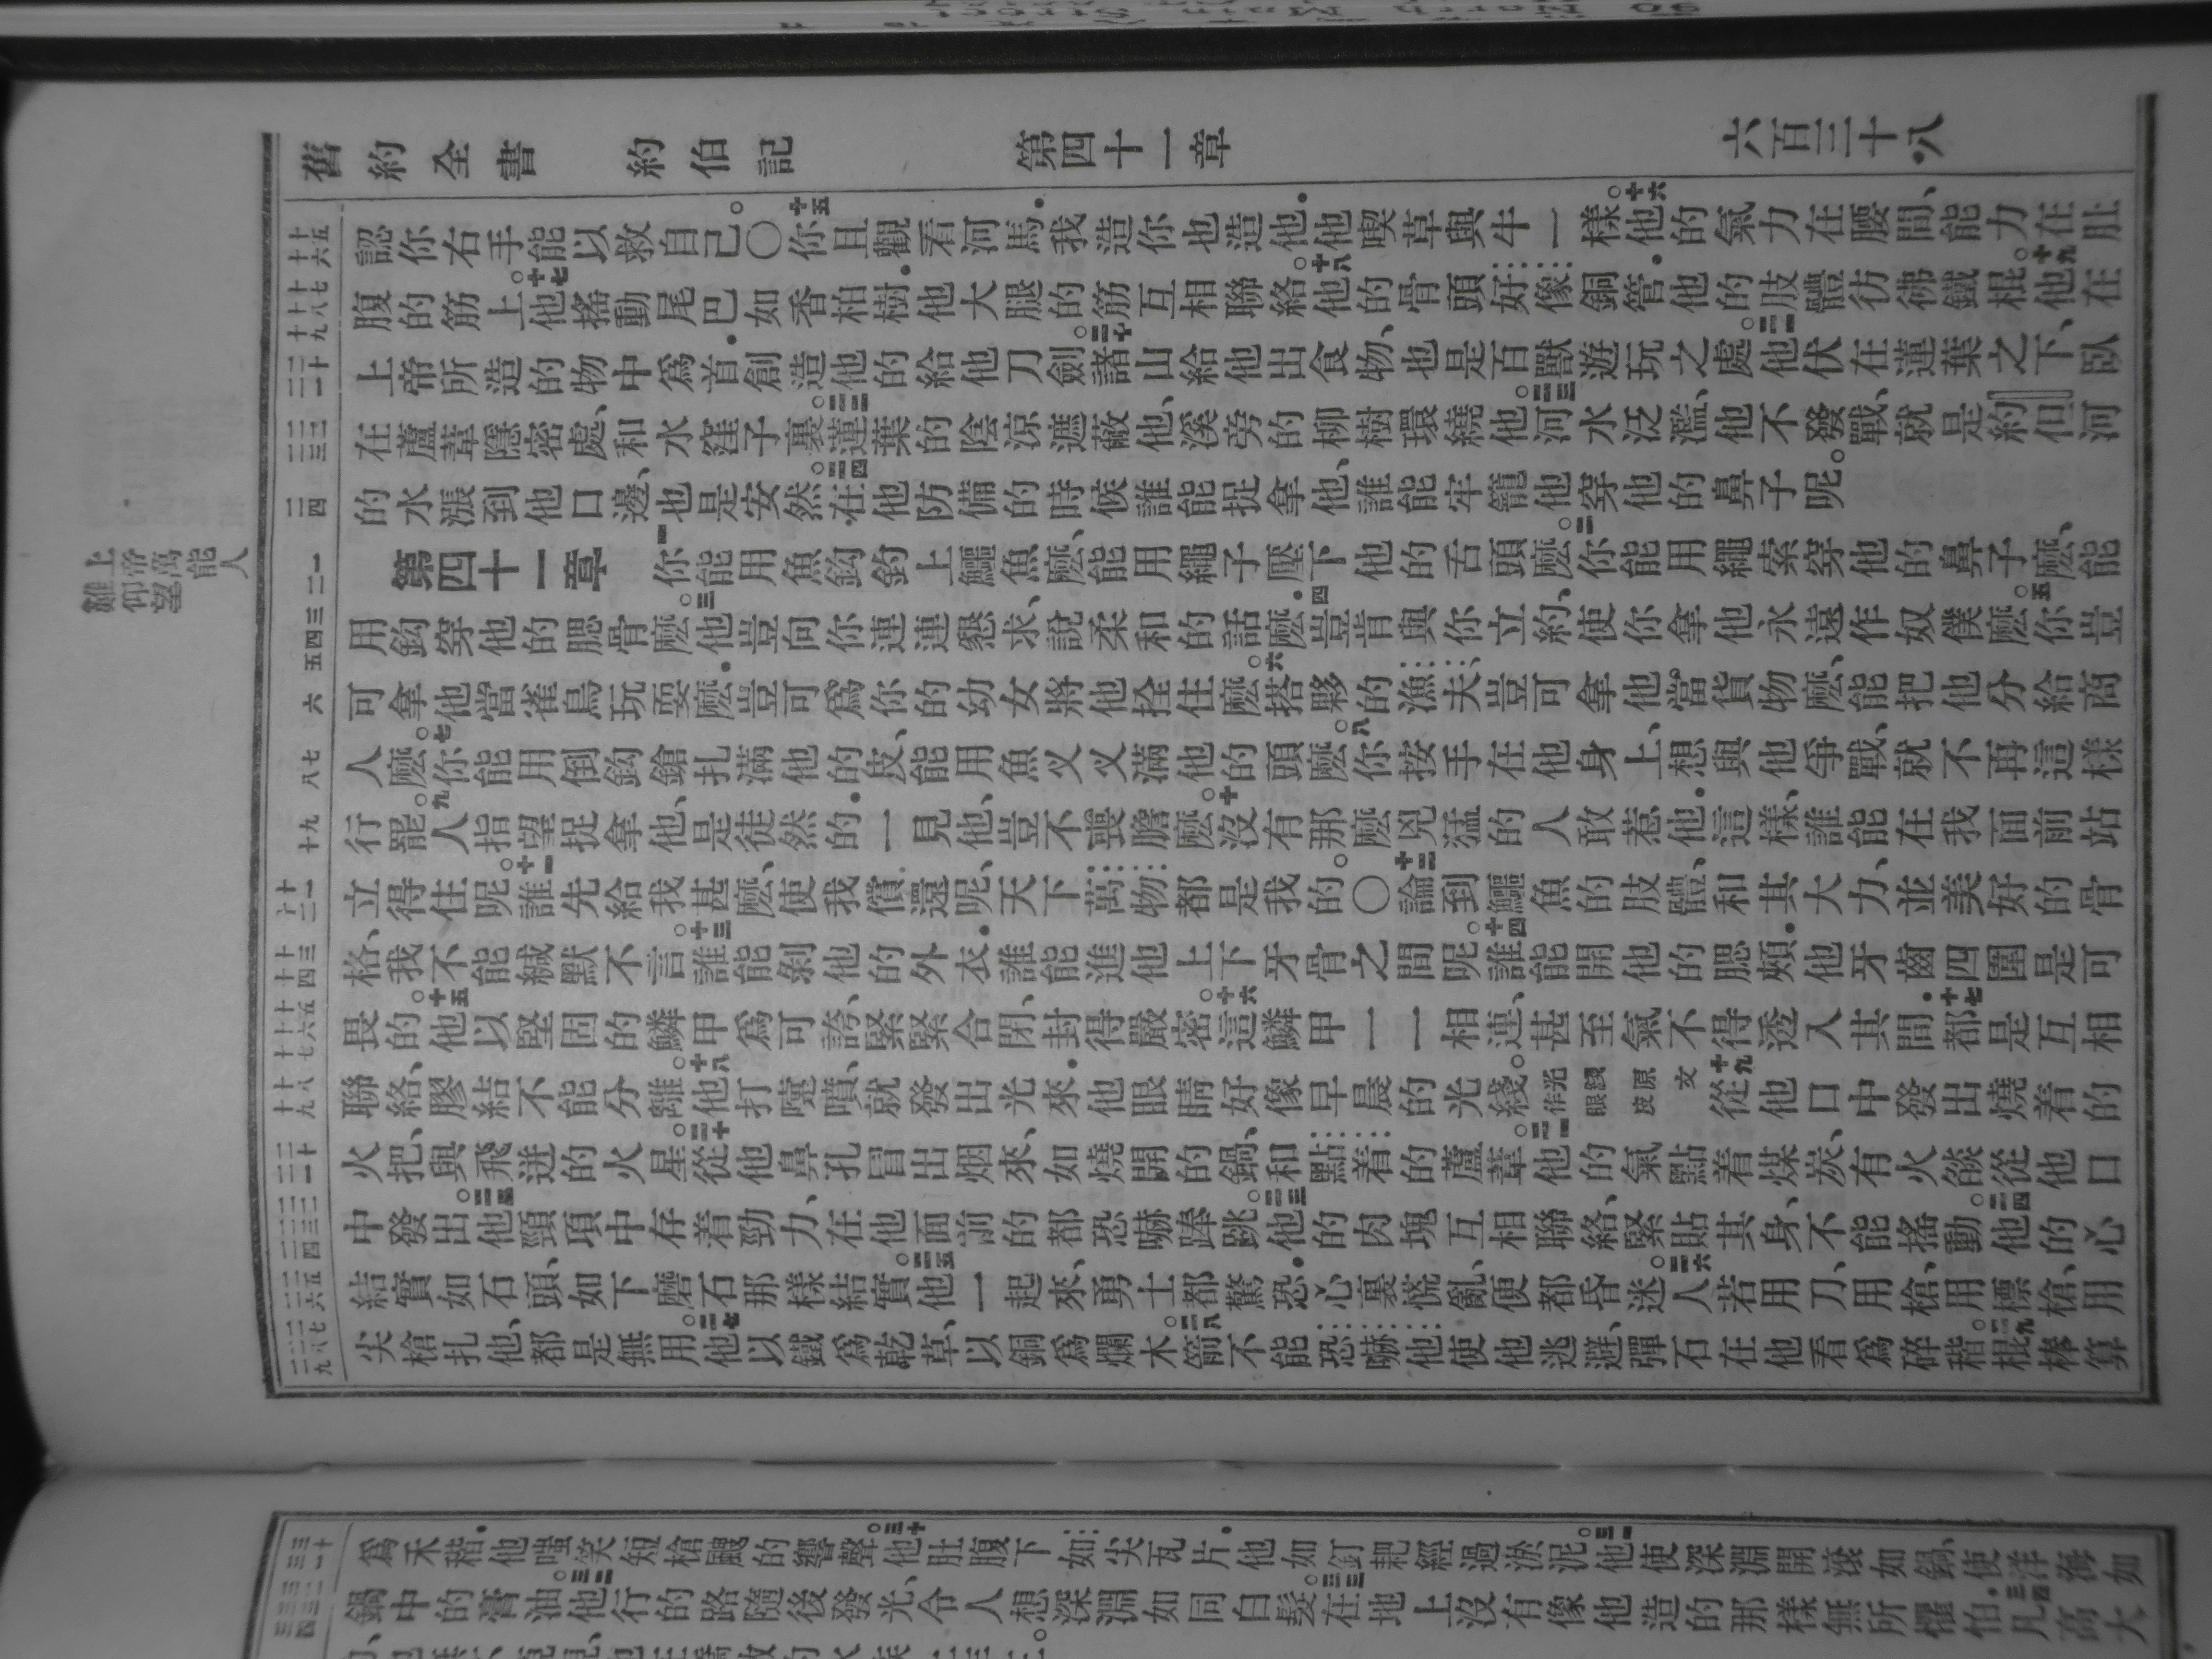 舊約全書 約伯記 第四十一章 六百三十八
認你右手能以救自己。〇十五你且觀看河馬．我造你也造他．他喫草與牛一樣。十六他的氣力在腰間、能力在肚
腹的筋上。十七他搖動尾巴如香柏樹．他大腿的筋互相聯絡。十八他的骨頭好像銅管．他的肢體彷彿鐵棍。十九他在
上帝所造的物中爲首．創造他的給他刀劍。二十諸山給他出食物、也是百獸遊玩之處。二一他伏在蓮葉之下、臥
在蘆葦隱密處、和水窪子裏。二二蓮葉的陰涼遮蔽他、溪旁的柳樹環繞他。二三河水泛濫、他不發戰、就是約但河
的水漲到他口邊、也是安然。二四在他防備的時候誰能捉拿他、誰能牢籠他穿他的鼻子呢。
第四十一章 一你能用魚鈎釣上鱷魚麽、能用繩子壓下他的舌頭麽。二你能用繩索穿他的鼻子麽、能
用鈎穿他的腮骨麽。三他豈向你連連懇求、說柔和的話麽．四豈肯與你立約、使你拿他永遠作奴僕麽。五你豈
可拿他當雀鳥玩耍麽．豈可爲你的幼女將他拴住麽。六搭夥的漁夫、豈可拿他當貨物麽、能把他分給商
人麽。七你能用倒鈎鎗扎滿他的皮、能用魚叉叉滿他的頭麽。八你按手在他身上、想與他爭戰、就不再這樣
行罷。九人指望捉拿他、是徒然的．一見他、豈不喪膽麽。十沒有那麽兇猛的人敢惹他．這樣、誰能在我面前站
立得住呢。十一誰先給我甚麽、使我償還呢、天下萬物都是我的。〇十二論到鱷魚的肢體、和其大力、並美好的骨
格、我不能緘默不言。十三誰能剝他的外衣．誰能進他上下牙骨之間呢。十四誰能開他的腮頰．他牙齒四圍是可
畏的。十五他以堅固的鱗甲爲可誇、緊緊合閉、封得嚴密。十六這鱗甲一一相連、甚至氣不得透入其間．十七都是互相
聯絡、膠結不能分離。十八他打嚏噴、就發出光來．他眼睛好像早晨的光綫。光綫原文作眼皮十九從他口中發出燒着的
火把、與飛迸的火星。二十從他鼻孔冒出烟來、如燒開的鍋、和點着的蘆葦。二一他的氣點着煤炭、有火燄從他口
中發出。二二他頸項中存着勁力、在他面前的都恐嚇蹲跳。二三他的肉塊互相聯絡、緊貼其身、不能搖動。二四他的心
結實如石頭、如下磨石那樣結實。二五他一起來、勇士都驚恐．心裏慌亂、便都昏迷。二六人若用刀、用槍、用標槍、用
尖槍扎他、都是無用。二七他以鐵爲乾草、以銅爲爛木。二八箭不能恐嚇他使他逃避、彈石在他看爲碎稭。二九棍棒算
爲禾稭．他嗤笑短槍颼的響聲。三十他肚腹下如尖瓦片．他如釘耙經過淤泥。三一他使深淵開滾如鍋、使洋海如
鍋中的膏油。三二他行的路隨後發光、令人想深淵如同白髮。三三在地上沒有像他造的那樣無所懼怕．三四凡高大
上帝萬能人
難仰望